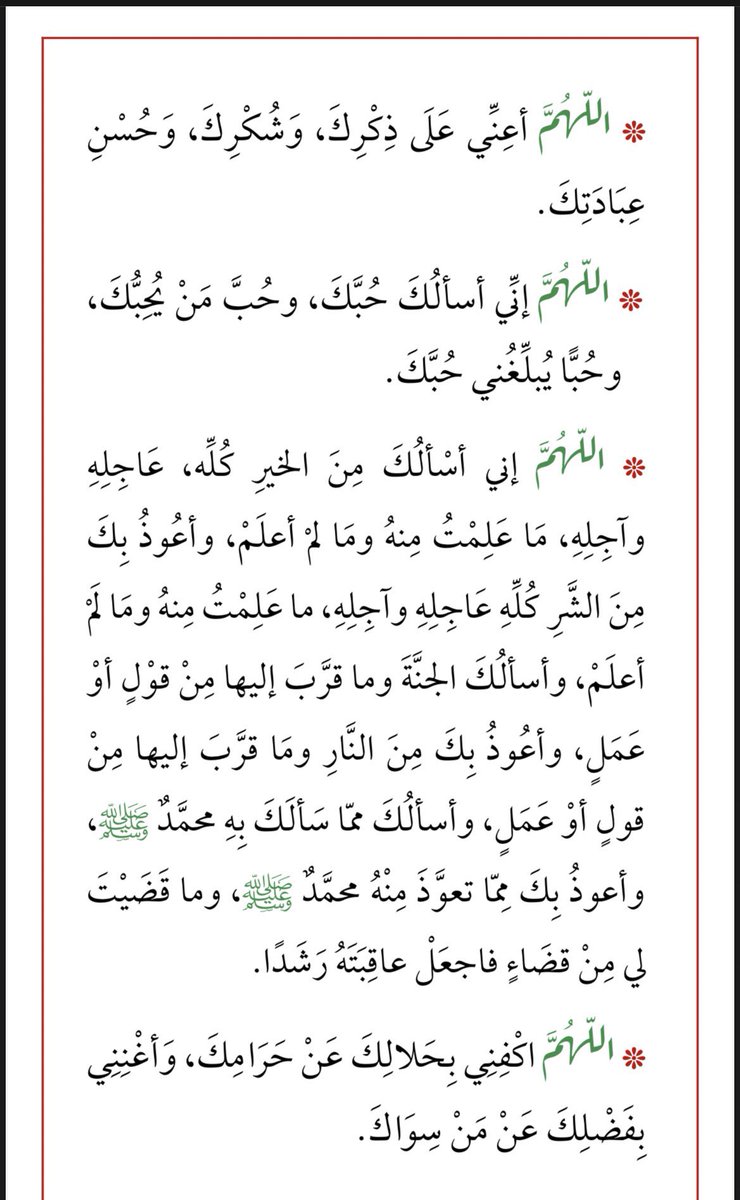 ❊ اللَّهُمَّ أعِنِّي عَلَى ذِكْرِكَ، وَشُكْرِكَ، وَحُسْنِ
عِبَادَتِكَ.
❊ اللَّهُمَّ إنِّي أسألُكَ حُبَّكَ، وحُبَّ مَنْ يُحِبُّكَ،
وحُبًّا يُبلِّغُني حُبَّكَ.
❊ اللَّهُمَّ إني أسْألُكَ مِنَ الخيرِ كُلِّه، عَاجِلِهِ
وآجِلِهِ، مَا عَلِمْتُ مِنهُ ومَا لمْ أعلَمْ، وأعُوذُ بِكَ
مِنَ الشَّرِ كُلِّهِ عَاجِلِهِ وآجِلِهِ، ما عَلِمْتُ مِنهُ ومَا لَمْ
أعلَمْ، وأسألُكَ الجنَّةَ وما قرَّبَ إليها مِنْ قوْلٍ أوْ
عَمَلٍ، وأعُوذُ بِكَ مِنَ النَّارِ ومَا قرَّبَ إليها مِنْ
قولٍ أوْ عَمَلٍ، وأسألُكَ ممّا سَألَكَ بِهِ محمَّدٌ ﷺ،
وأعوذُ بِكَ مِمّا تعوَّذَ مِنْهُ محمَّدٌ ﷺ، وما قَضَيْتَ
لي مِنْ قضَاءٍ فاجعَلْ عاقِبَتَهُ رَشَدًا.
❊ اللَّهُمَّ اكْفِنِي بِحَلالِكَ عَنْ حَرَامِكَ، وَأغْنِنِي
بِفَضْلِكَ عَنْ مَنْ سِوَاكَ.